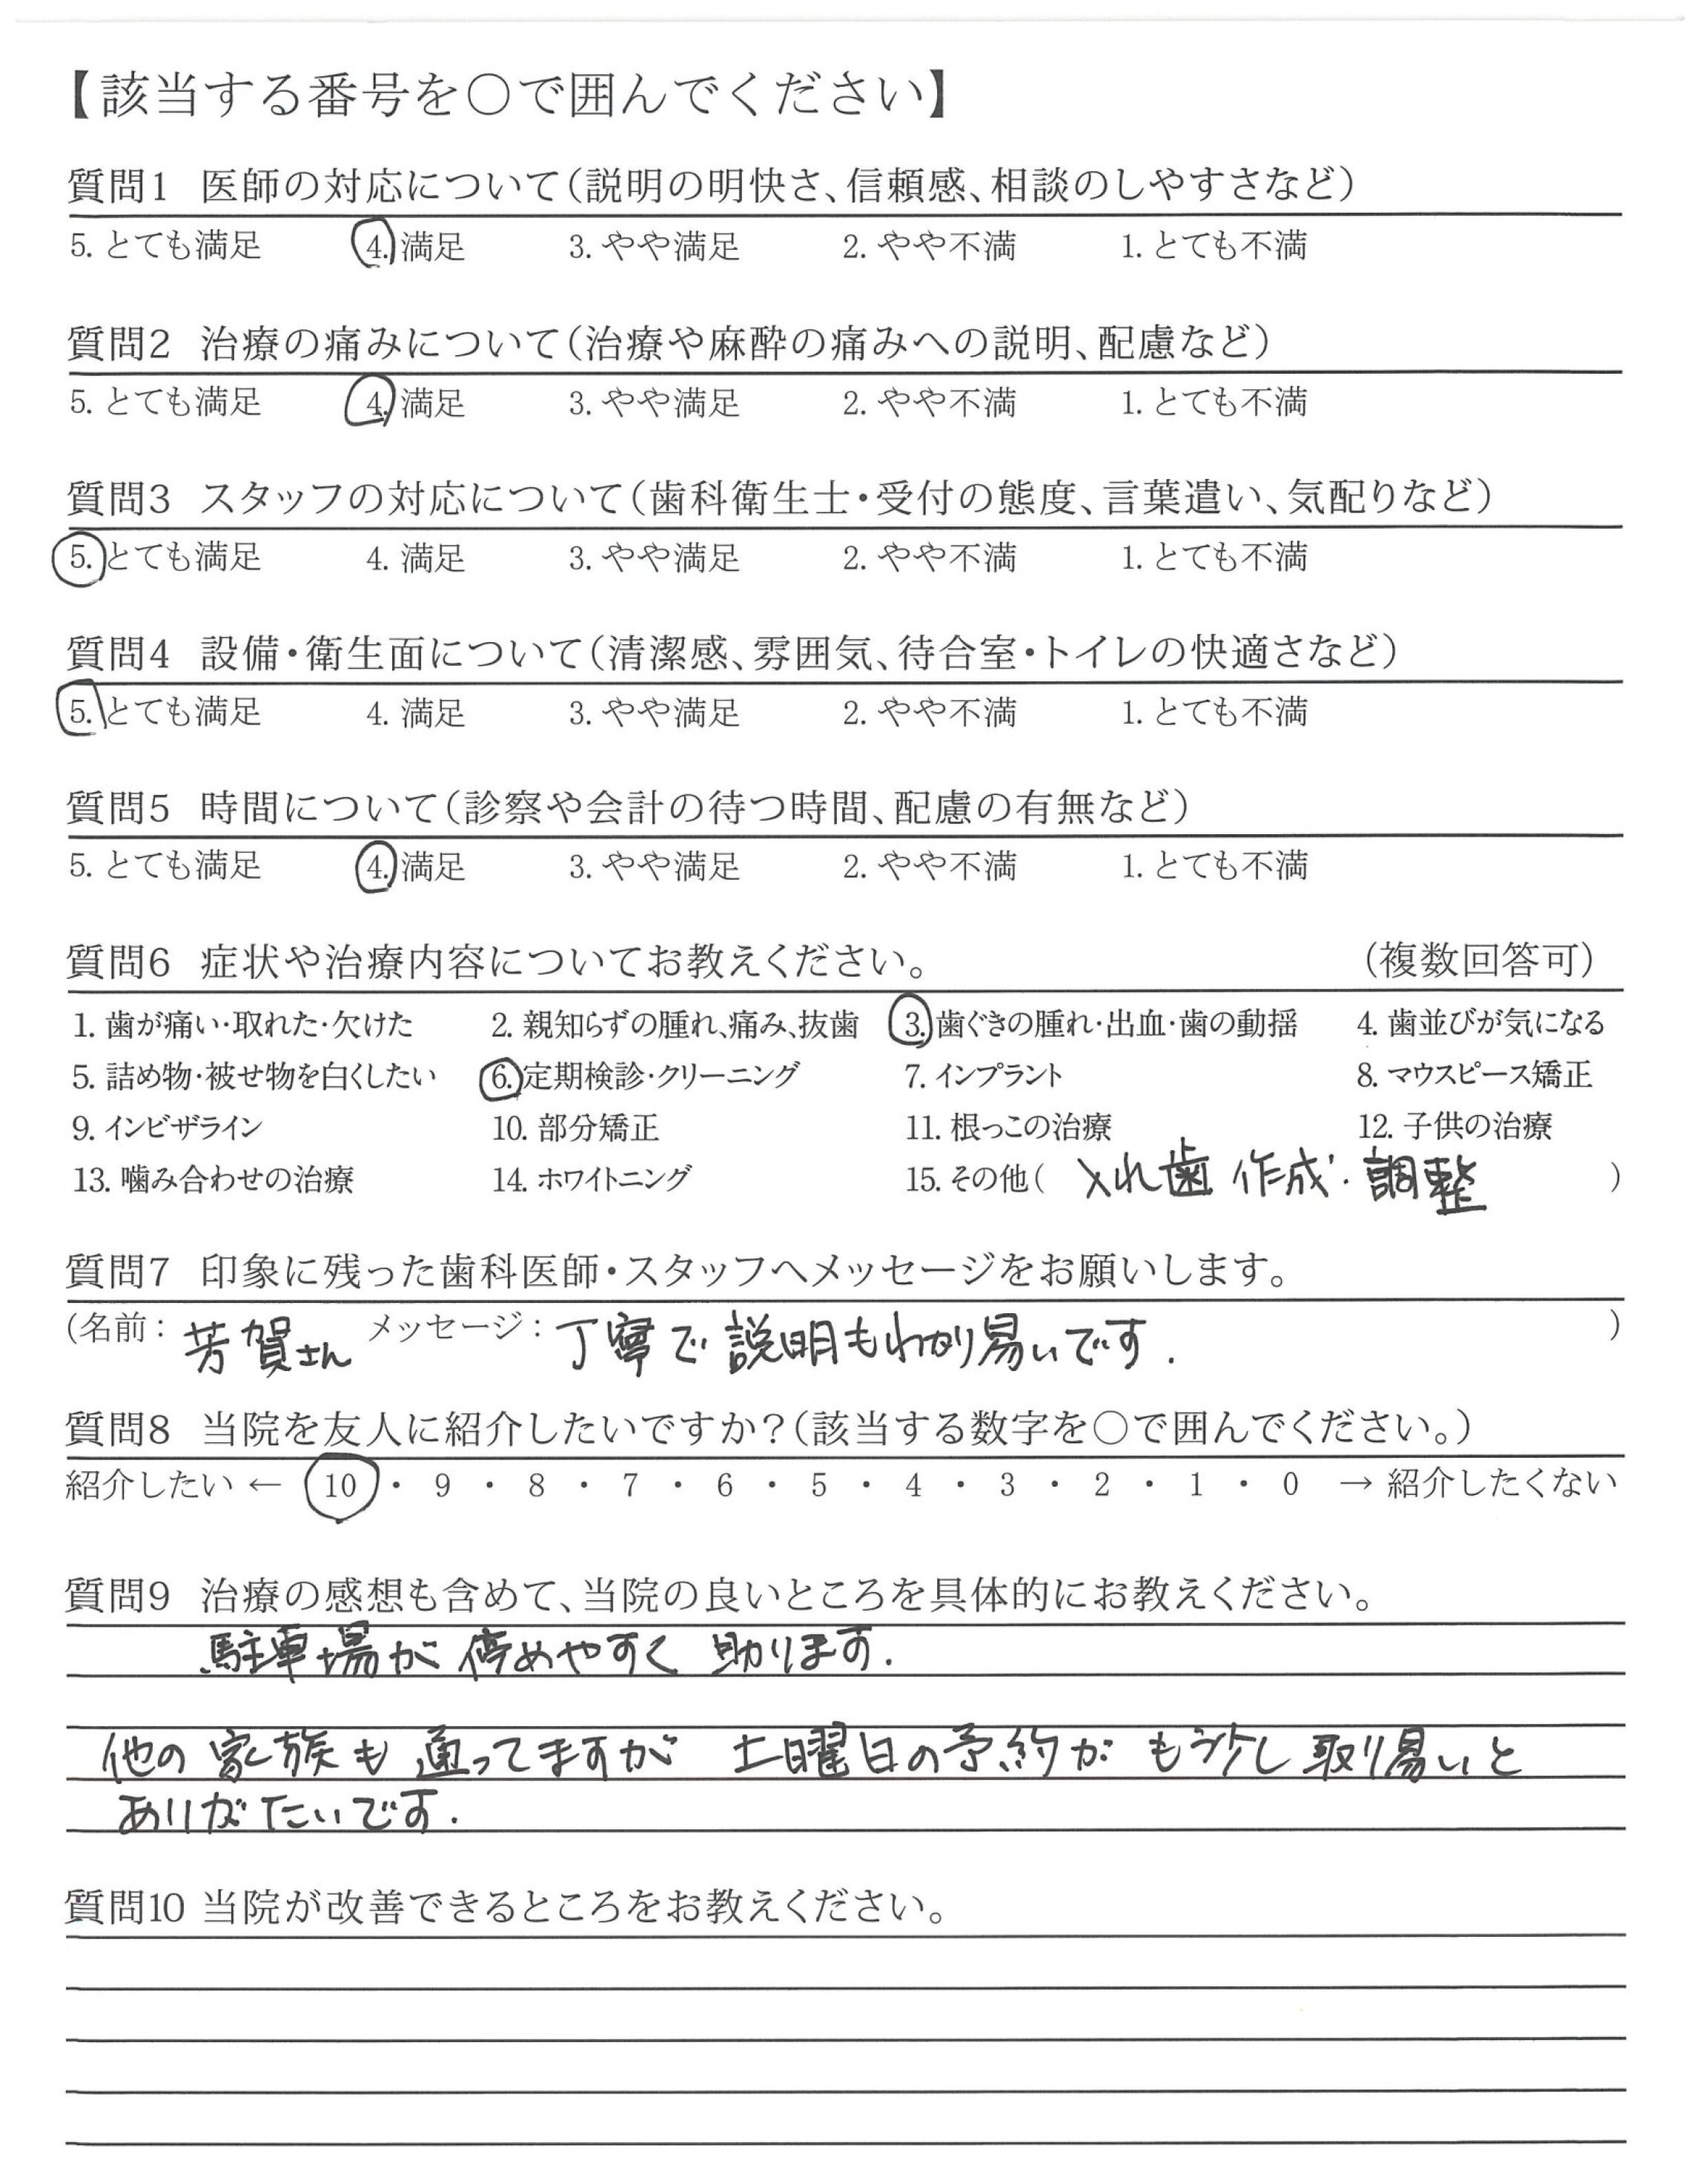 【該当する番号を〇で囲んでください】
質問1 医師の対応について(説明の明快さ、信頼感、相談のしやすさなど)
5. とても満足 4. 満足 3. やや満足 2. やや不満 1. とても不満
質問2 治療の痛みについて(治療や麻酔の痛みへの説明、配慮など)
5. とても満足 4. 満足 3. やや満足 2. やや不満 1. とても不満
質問3 スタッフの対応について(歯科衛生士・受付の態度、言葉遣い、気配りなど)
5. とても満足 4. 満足 3. やや満足 2. やや不満 1. とても不満
質問4 設備・衛生面について(清潔感、雰囲気、待合室・トイレの快適さなど)
5. とても満足 4. 満足 3. やや満足 2. やや不満 1. とても不満
質問5 時間について(診察や会計の待つ時間、配慮の有無など)
5. とても満足 4. 満足 3. やや満足 2. やや不満 1. とても不満
質問6 症状や治療内容についてお教えください。 (複数回答可)
1. 歯が痛い・取れた・欠けた 2. 親知らずの腫れ、痛み、抜歯 3. 歯ぐきの腫れ・出血・歯の動揺 4. 歯並びが気になる
5. 詰め物・被せ物を白くしたい 6. 定期検診・クリーニング 7. インプラント 8. マウスピース矯正
9. インビザライン 10. 部分矯正 11. 根っこの治療 12. 子供の治療
13. 噛み合わせの治療 14. ホワイトニング 15. その他( 入れ歯 作成・調整 )
質問7 印象に残った歯科医師・スタッフへメッセージをお願いします。
(名前: 芳賀さん メッセージ: 丁寧で説明もわかり易いです. )
質問8 当院を友人に紹介したいですか?(該当する数字を〇で囲んでください。)
紹介したい ← 10 ・ 9 ・ 8 ・ 7 ・ 6 ・ 5 ・ 4 ・ 3 ・ 2 ・ 1 ・ 0 → 紹介したくない
質問9 治療の感想も含めて、当院の良いところを具体的にお教えください。
駐車場が停めやすく 助ります.
他の家族も通ってますが 土曜日の予約がも少し取り易いと
ありがたいです.
質問10 当院が改善できるところをお教えください。